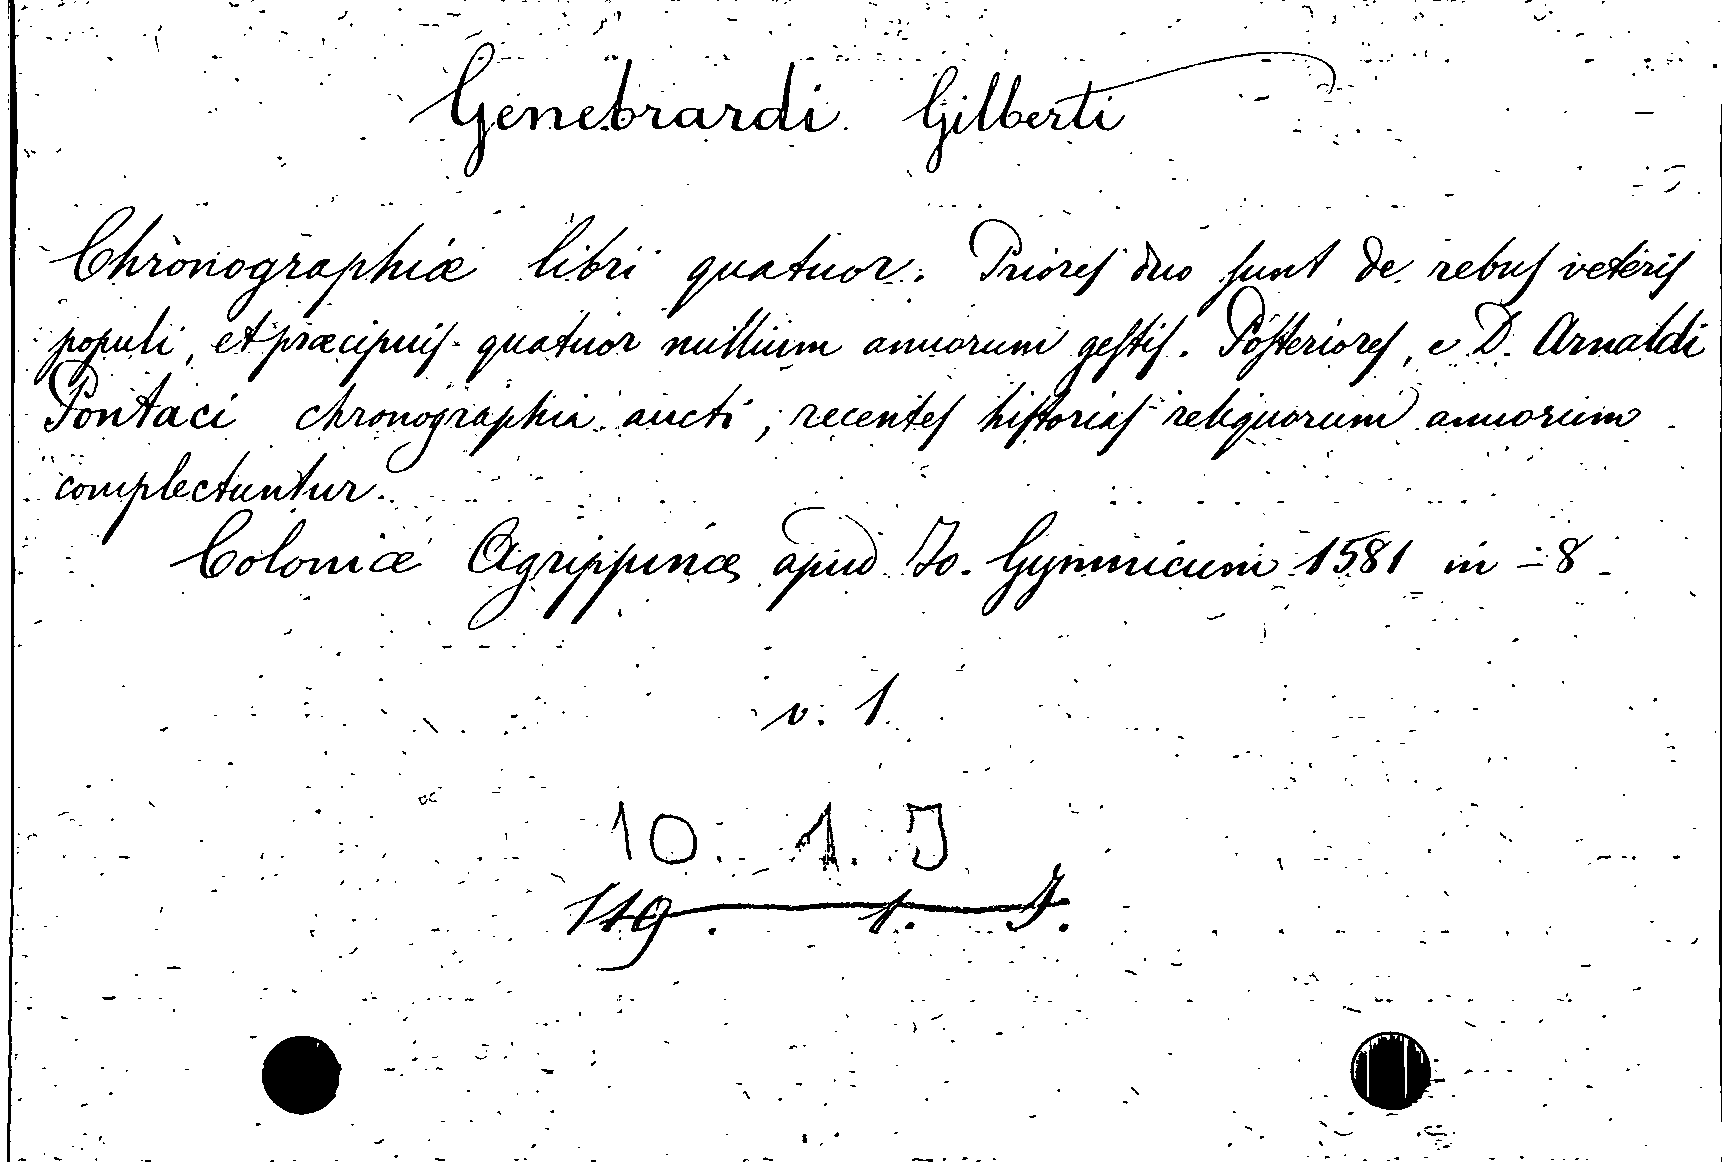 Genebrardi Gilberti
Chronographiæ libri quatuor. Priores duo sunt de rebus veteris
populi, et præcipuis quatuor millium annorum gestis. Posteriores, e D. Arnaldi
Pontaci chronographia aucti, recentes historias reliquorum annorum
complectuntur.
Coloniæ Agrippinæ apud Jo. Gymnicum 1581 in-8
v. 1
10. 1. J
119. 1. J.